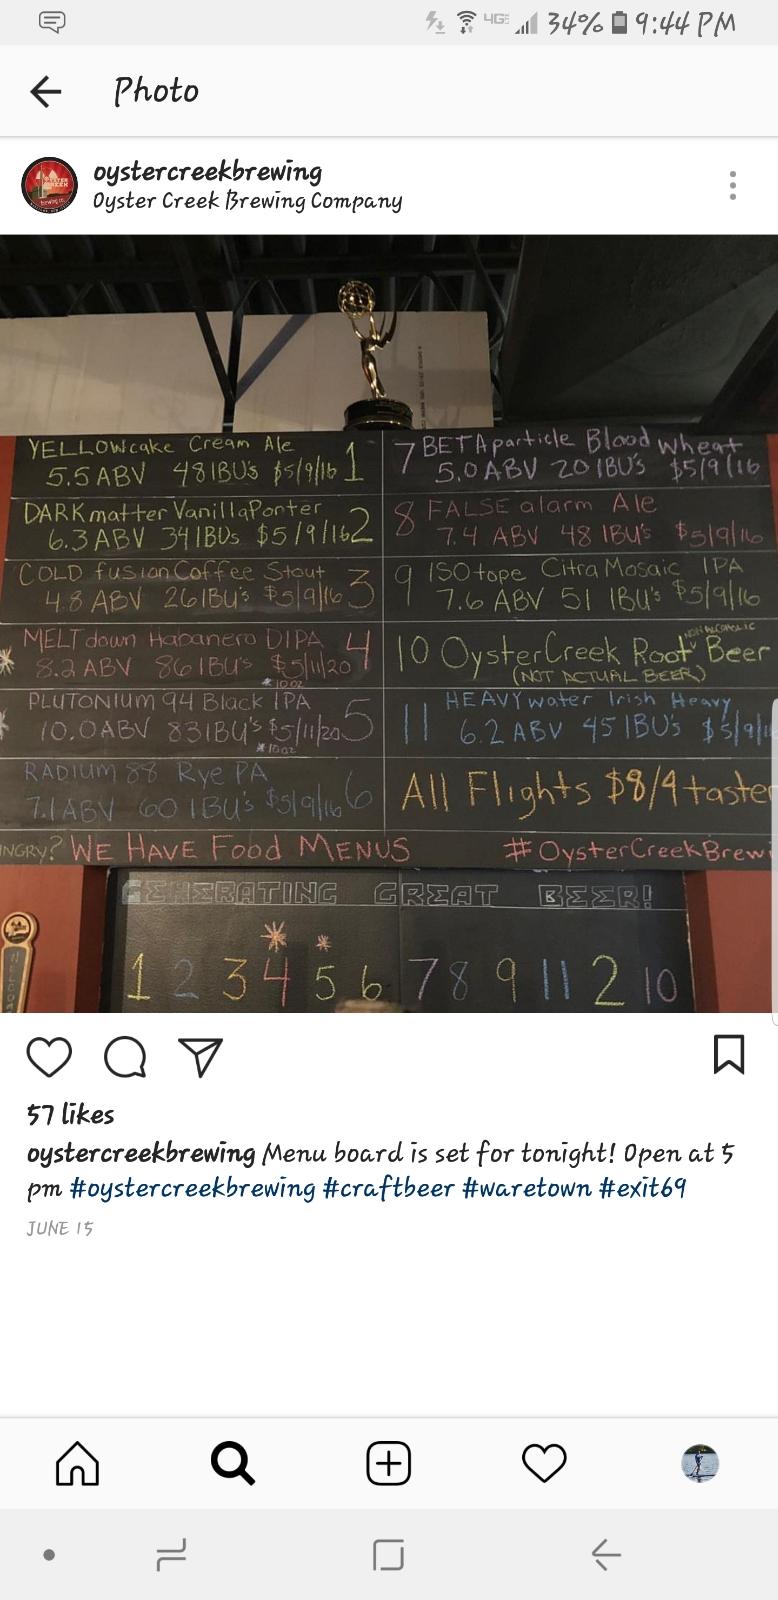 4GE 34% 9:44 PM
Photo
oystercreekbrewing
Oyster Creek Brewing Company
YELLOWcake Cream Ale 1
5.5 ABV 48 IBU's $5/9/16
DARKmatter VanillaPorter 2
6.3 ABV 34 IBUs $5/9/16
COLD fusion Coffee Stout 3
4.8 ABV 26 IBU's $5/9/16
MELTdown Habanero DIPA 4
8.2 ABV 86 IBU's $5/11/20
*10oz
PLUTONIUM 94 Black IPA 5
10.0 ABV 83 IBU's $5/11/20
*10oz
RADIUM 88 Rye PA 6
7.1 ABV 60 IBU's $5/9/16
7 BETAparticle Blood Wheat
5.0 ABV 20 IBU'S $5/9/16
8 FALSE alarm Ale
7.4 ABV 48 IBU's $5/9/16
9 ISOtope Citra Mosaic IPA
7.6 ABV 51 IBU's $5/9/16
NON ALCOHOLIC
10 OysterCreek Root Beer
(NOT ACTUAL BEER)
11 HEAVYwater Irish Heavy
6.2 ABV 45 IBU's $5/9/1
All Flights $8/4 taster
NGRY? WE HAVE Food MENUS #OysterCreekBrewi
GENERATING GREAT BEER!
1 2 3 4 5 6 7 8 9 11 2 10
WELCOM
57 likes
oystercreekbrewing Menu board is set for tonight! Open at 5
pm #oystercreekbrewing #craftbeer #waretown #exit69
JUNE 15